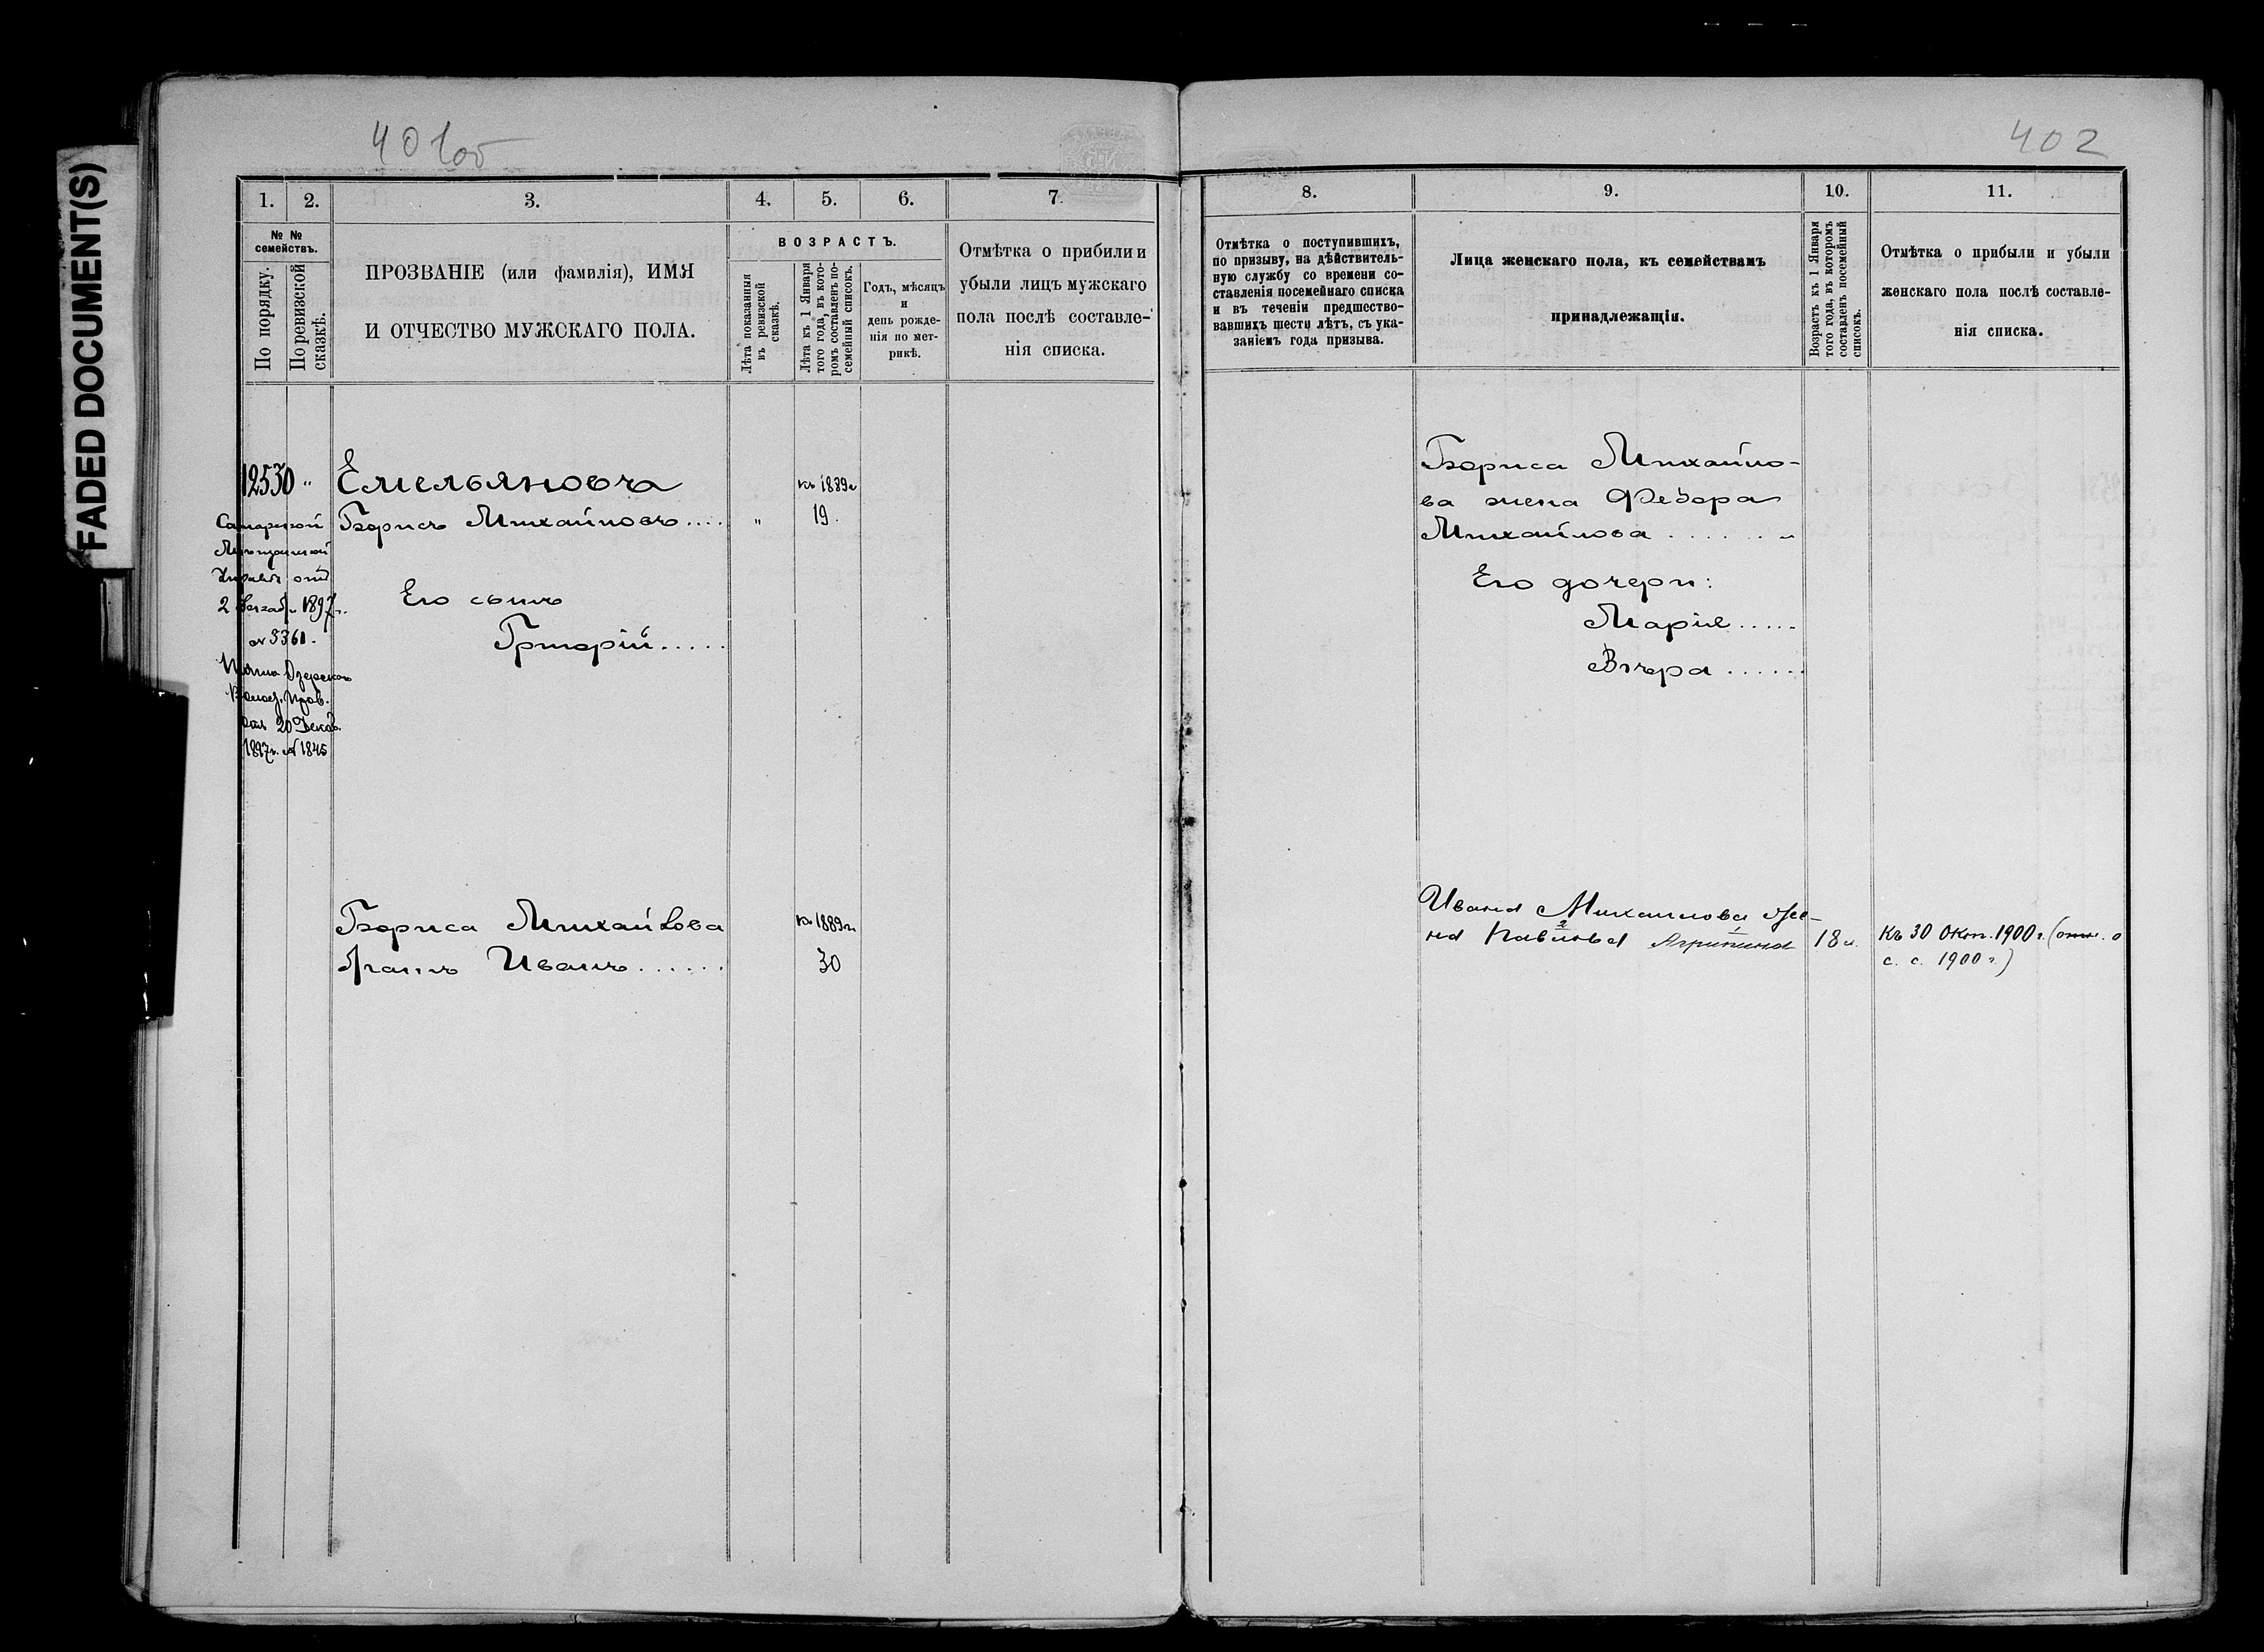 FADED DOCUMENT(S)
401об
1.
2.
3.
4.
5.
6.
7.
№ №
семействъ.
По порядку.
По ревизской
сказкѣ.
ПРОЗВАНІЕ (или фамилія), ИМЯ
И ОТЧЕСТВО МУЖСКАГО ПОЛА.
ВОЗРАСТЪ.
Лѣта показанныя
въ ревизской
сказкѣ.
Лѣта къ 1 Января
того года, въ кото-
ромъ составленъ по-
семейный списокъ.
Годъ, мѣсяцъ
и
день рожде-
нія по мет-
рикѣ.
Отмѣтка о прибили и
убыли лицъ мужскаго
пола послѣ составле-
нія списка.
12530 "
Самарской
Мѣщанской
Управы отъ
2 Декаб. 1897 г.
№ 3361.
Озерскаго
Волос. Прав.
отъ 20 Декаб.
1897 г. № 1845
Емельяновъ
къ 1889 г
Борисъ Михайловъ.... " 19.
Его сынъ
Григорій.....
Бориса Михайлова
къ 1889 г.
братъ Иванъ...... 30
402
8.
9.
10.
11.
Отмѣтка о поступившихъ,
по призыву, на дѣйствитель-
ную службу со времени со-
ставленія посемейнаго списка
и въ теченіи предшество-
вавшихъ шести лѣтъ, съ ука-
заніемъ года призыва.
Лица женскаго пола, къ семействамъ
принадлежащія.
Возрастъ къ 1 Января
того года, въ которомъ
составленъ посемейный
списокъ.
Отмѣтка о прибыли и убыли
женскаго пола послѣ составле-
нія списка.
Бориса Михайло-
ва жена Федора
Михайлова.......
Его дочери:
Марія.....
Вѣра......
Ивана Михайлова же-
на Павлова Агрипина 18 л.
2 1
Къ 30 Окт. 1900 г. (отн. о
с. с. 1900 г.)